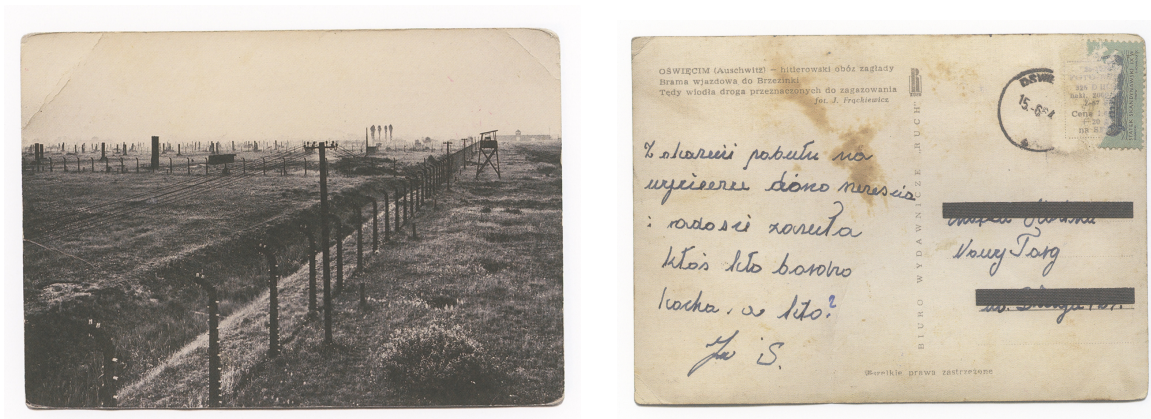 OŚWIĘCIM (Auschwitz) — hitlerowski obóz zagłady
Brama wjazdowa do Brzezinki
Tędy wiodła droga przeznaczonych do zagazowania
fot. J. Frąckiewicz
BIURO WYDAWNICZE „RUCH"
Z okazji pobytu na
wycieczce dużo szczęścia
i radości zasyła
ktoś kto bardzo
kocha, a kto?
OŚWI
15.-6.64
Cena
Nowy Targ
ul. Długa
Wszelkie prawa zastrzeżone